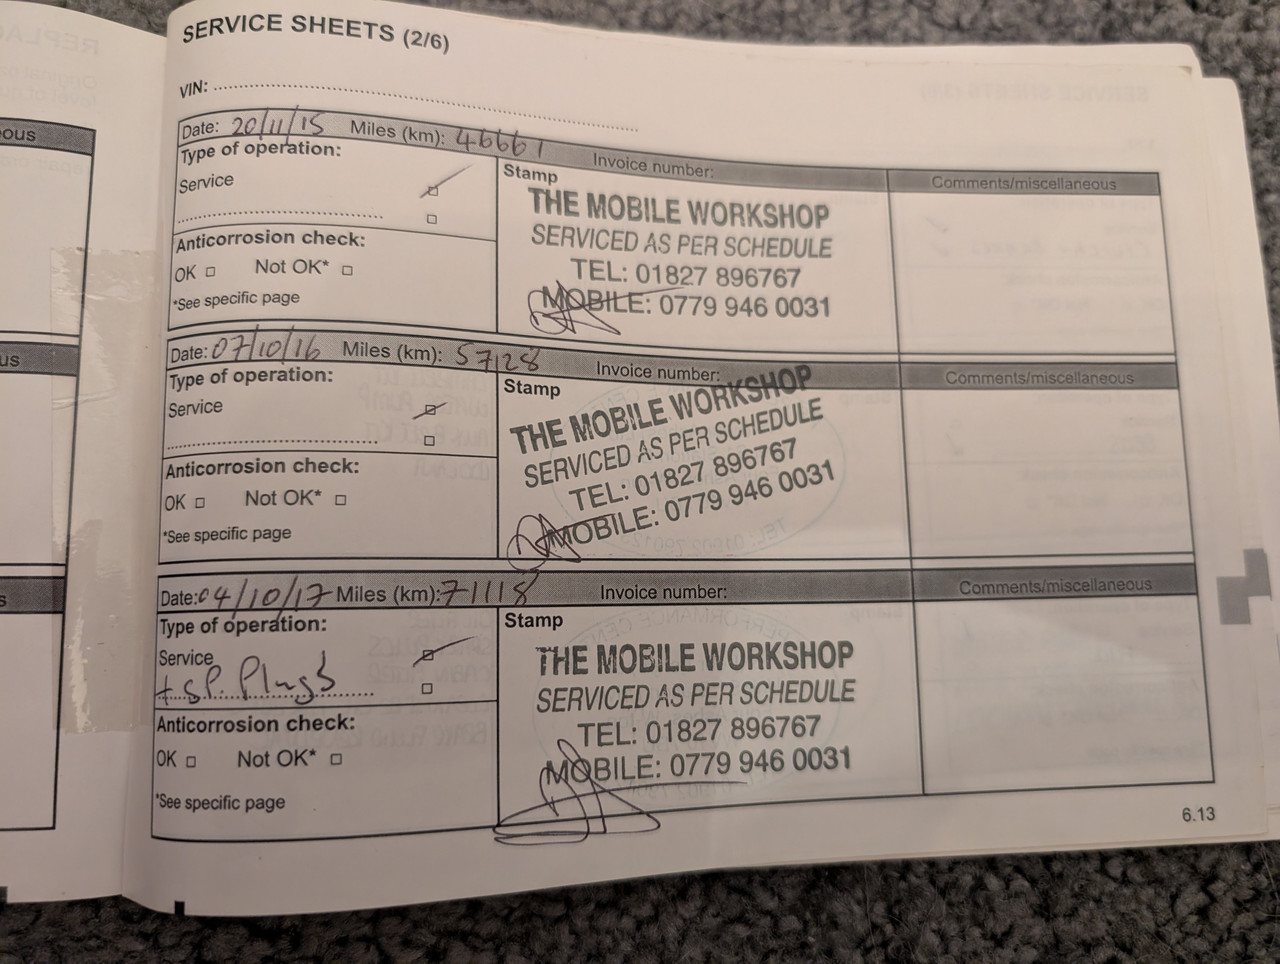 SERVICE SHEETS (2/6)
VIN:
Date: 20/11/15 Miles (km): 46661 Invoice number: Comments/miscellaneous
Type of operation:
Service
Anticorrosion check:
OK Not OK*
*See specific page
Stamp
THE MOBILE WORKSHOP
SERVICED AS PER SCHEDULE
TEL: 01827 896767
MOBILE: 0779 946 0031
Date: 07/10/16 Miles (km): 57128 Invoice number: Comments/miscellaneous
Type of operation:
Service
Anticorrosion check:
OK Not OK*
*See specific page
Stamp
THE MOBILE WORKSHOP
SERVICED AS PER SCHEDULE
TEL: 01827 896767
MOBILE: 0779 946 0031
Date: 04/10/17 Miles (km): 71118 Invoice number: Comments/miscellaneous
Type of operation:
Service
+ SP. Plugs
Anticorrosion check:
OK Not OK*
*See specific page
Stamp
THE MOBILE WORKSHOP
SERVICED AS PER SCHEDULE
TEL: 01827 896767
MOBILE: 0779 946 0031
6.13